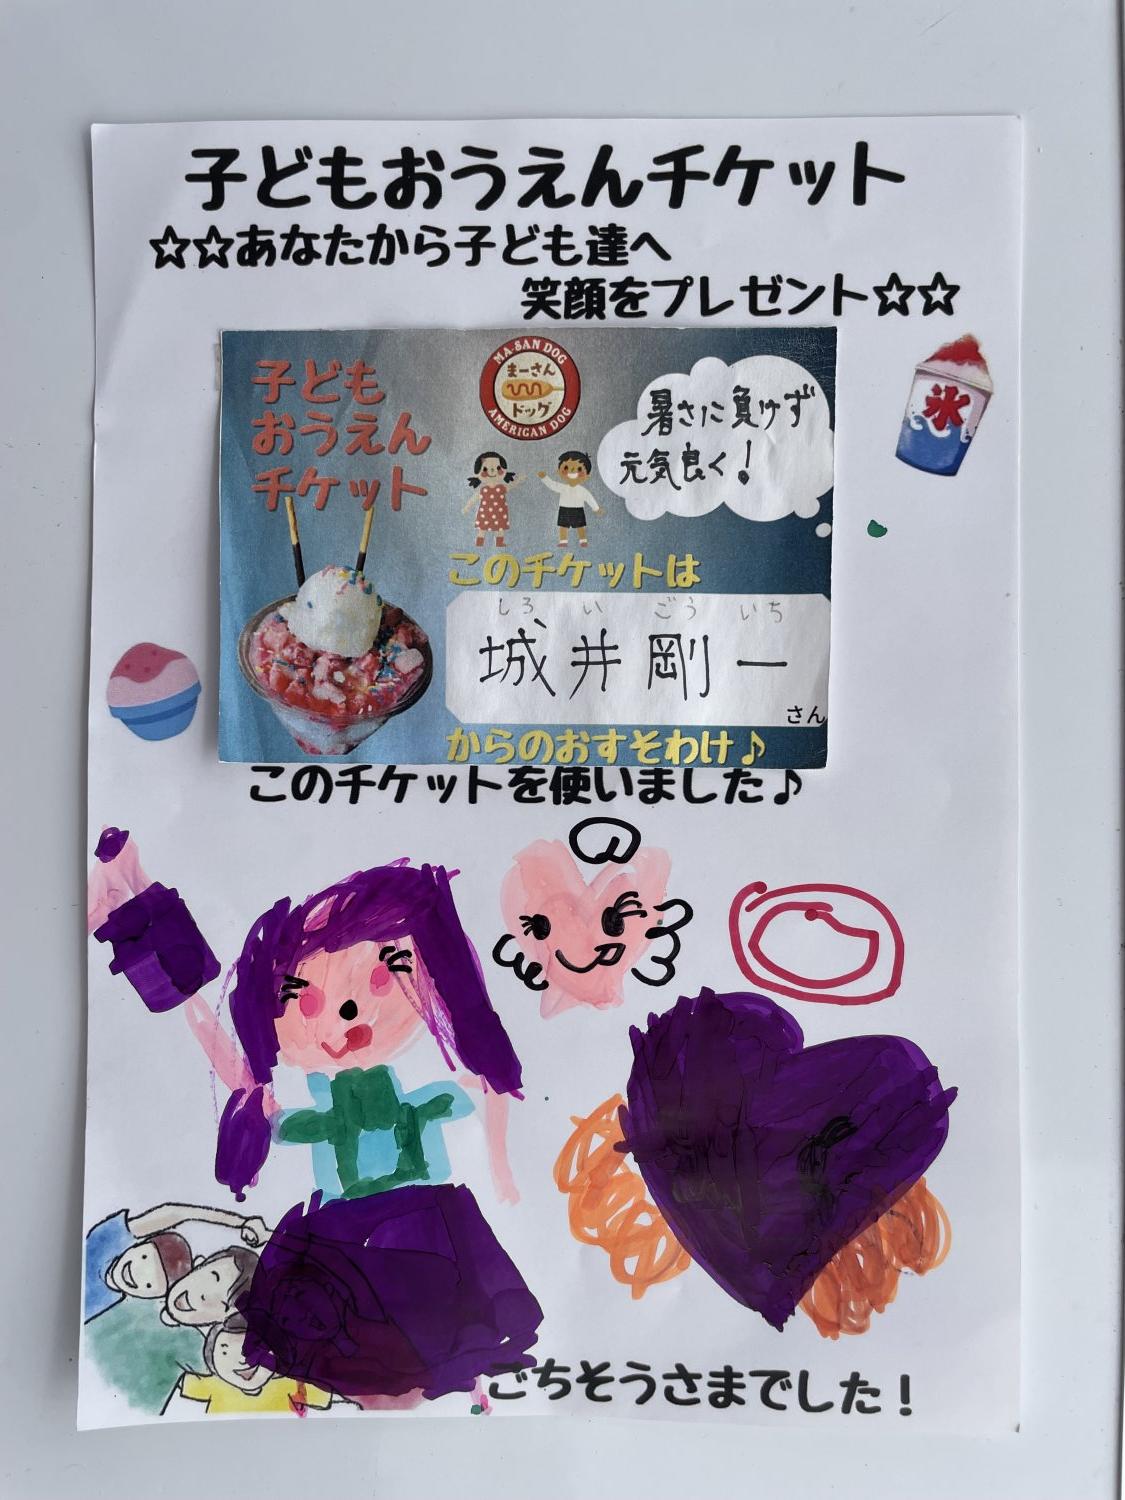 子どもおうえんチケット
☆☆あなたから子ども達へ
笑顔をプレゼント☆☆
子ども
おうえん
チケット
MA-SAN DOG
まーさん
ドッグ
AMERICAN DOG
暑さに負けず
元気良く!
氷
このチケットは
しろ い ごう いち
城井剛一
さん
からのおすそわけ♪
このチケットを使いました♪
ごちそうさまでした!